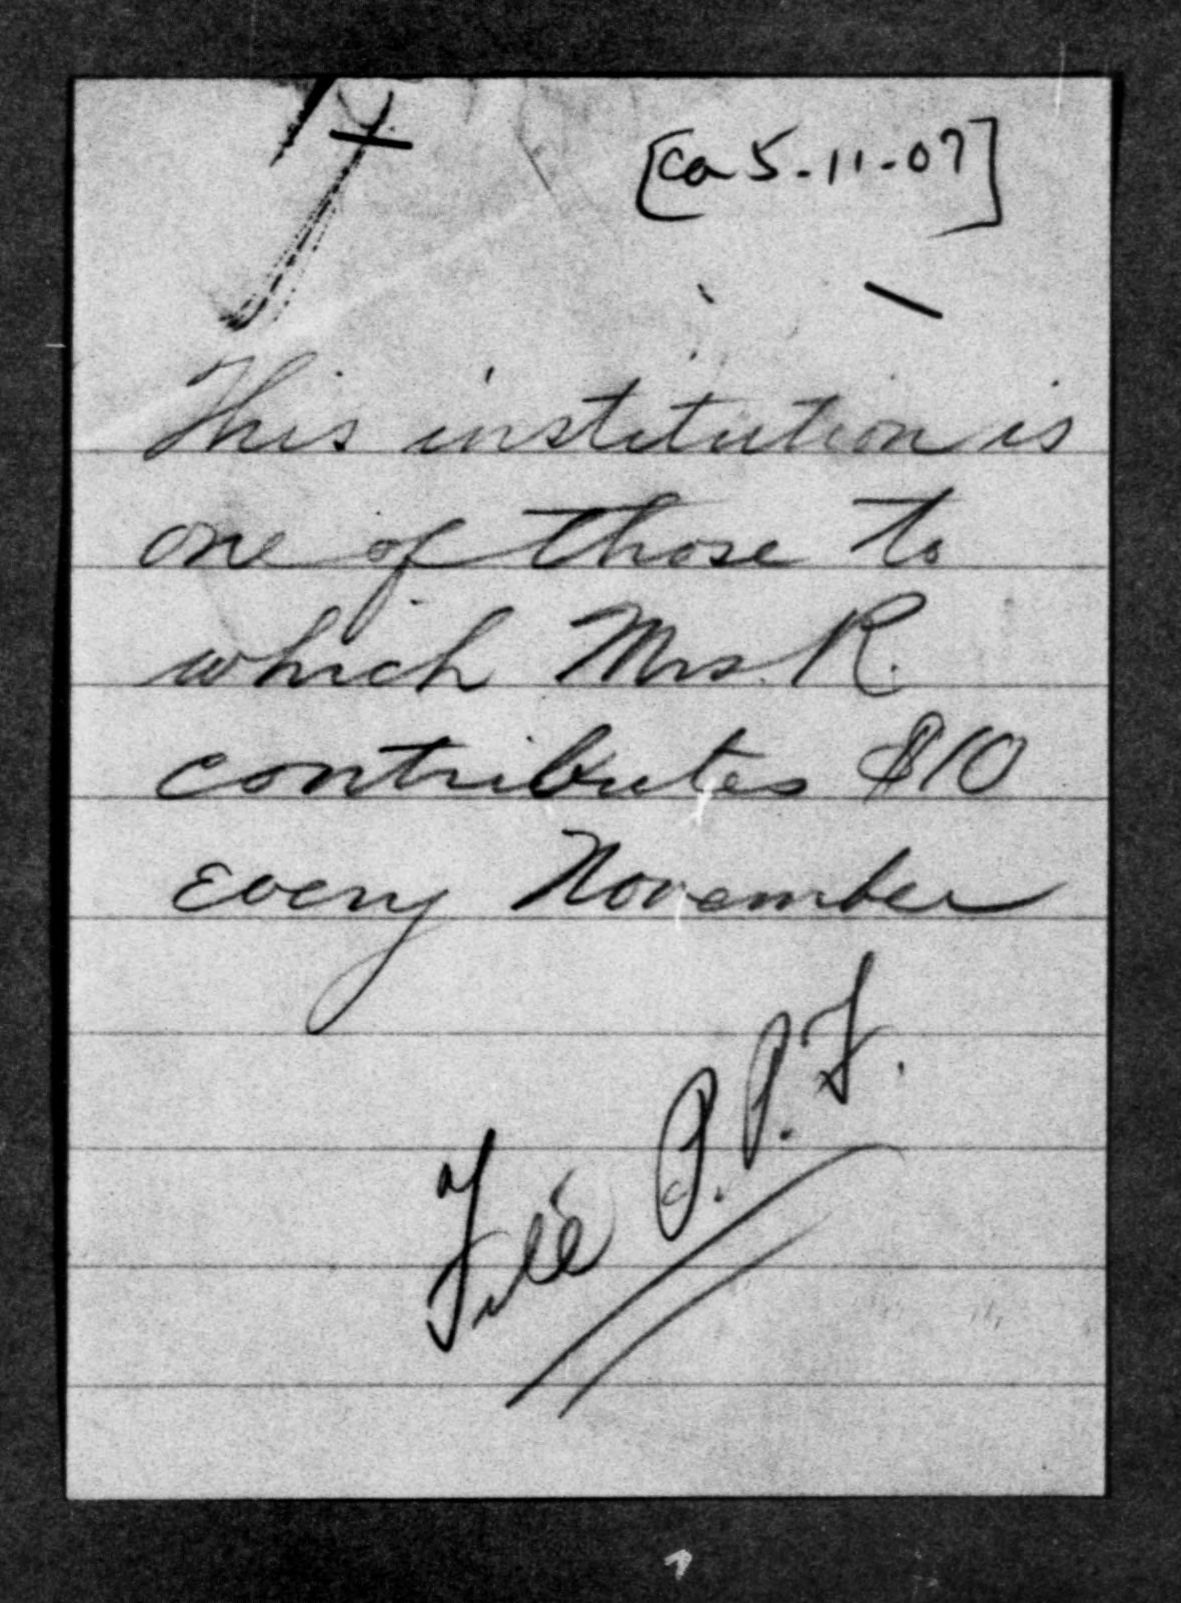 [ca 5-11-07]
This institution is
one of those to
which Mrs. R.
contributes $10
every November
File P.P.F.